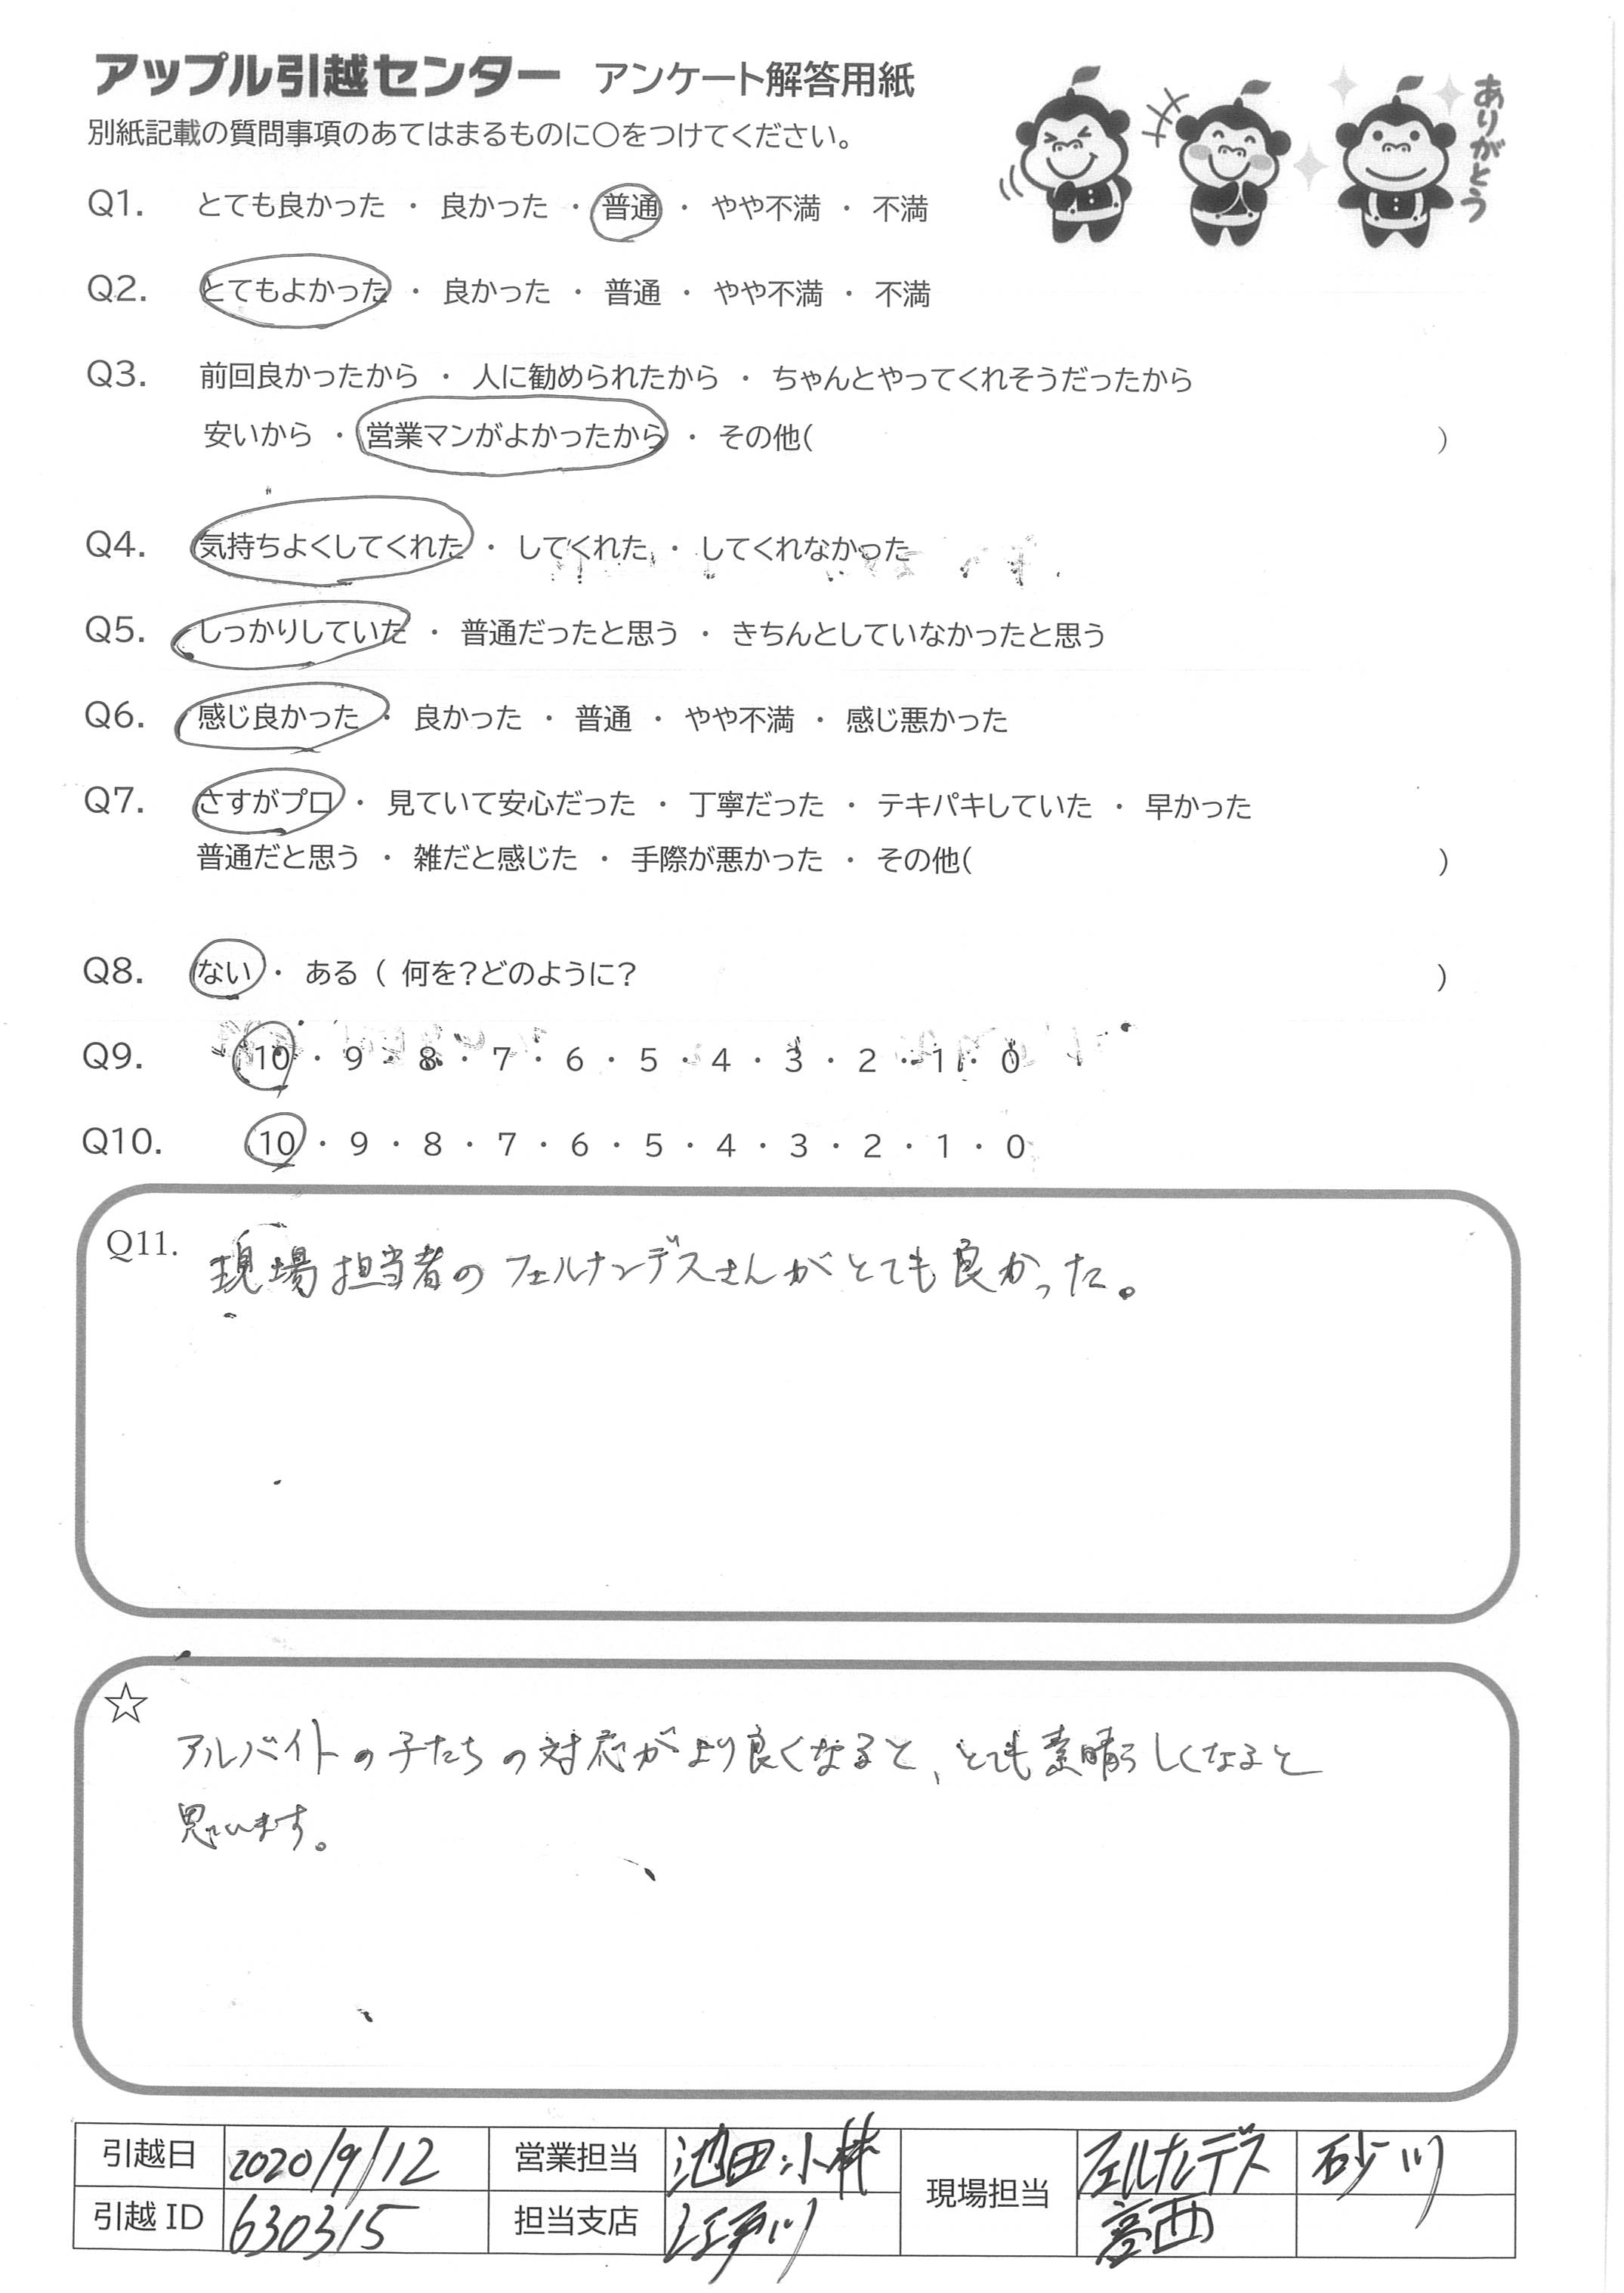 アップル引越センター アンケート解答用紙
ありがとう
別紙記載の質問事項のあてはまるものに〇をつけてください。
Q1. とても良かった ・ 良かった ・ 普通 ・ やや不満 ・ 不満
Q2. とてもよかった ・ 良かった ・ 普通 ・ やや不満 ・ 不満
Q3. 前回良かったから ・ 人に勧められたから ・ ちゃんとやってくれそうだったから
安いから ・ 営業マンがよかったから ・ その他( )
Q4. 気持ちよくしてくれた ・ してくれた ・ してくれなかった
Q5. しっかりしていた ・ 普通だったと思う ・ きちんとしていなかったと思う
Q6. 感じ良かった ・ 良かった ・ 普通 ・ やや不満 ・ 感じ悪かった
Q7. さすがプロ ・ 見ていて安心だった ・ 丁寧だった ・ テキパキしていた ・ 早かった
普通だと思う ・ 雑だと感じた ・ 手際が悪かった ・ その他( )
Q8. ない ・ ある ( 何を?どのように? )
Q9. 10 ・ 9 ・ 8 ・ 7 ・ 6 ・ 5 ・ 4 ・ 3 ・ 2 ・ 1 ・ 0
Q10. 10 ・ 9 ・ 8 ・ 7 ・ 6 ・ 5 ・ 4 ・ 3 ・ 2 ・ 1 ・ 0
Q11. 現場担当者のフェルナンデスさんがとても良かった。
☆
アルバイトの子たちの対応がより良くなると、とても素晴らしくなると
思います。
引越日 2020/9/12 営業担当 池田小林 現場担当 フェルナンデス 砂川
引越 ID 630315 担当支店 江戸川 葛西